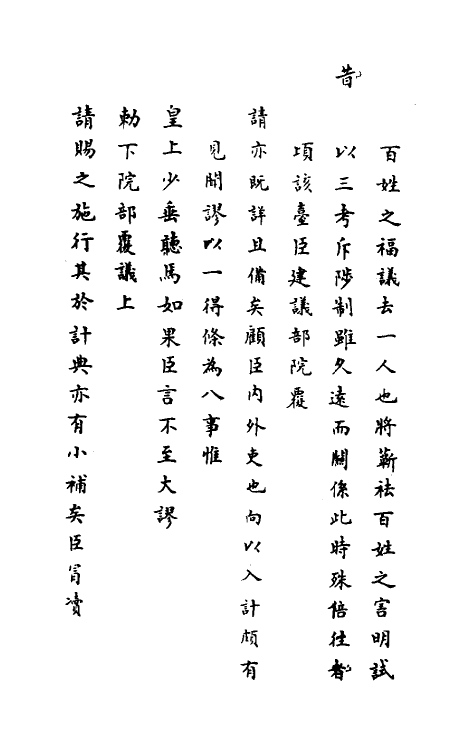 百姓之福議去一人也將蘄祛百姓之害明試
以三考斥陟制雖久遠而關係此時殊倍徃者昔
項該臺臣建議部院覆
請亦既詳且備矣顧臣內外吏也向以入計頗有
見聞謬以一得條為八事惟
皇上少垂聽焉如果臣言不至大謬
勅下院部覆議上
請賜之施行其於計典亦有小補矣臣冒瀆